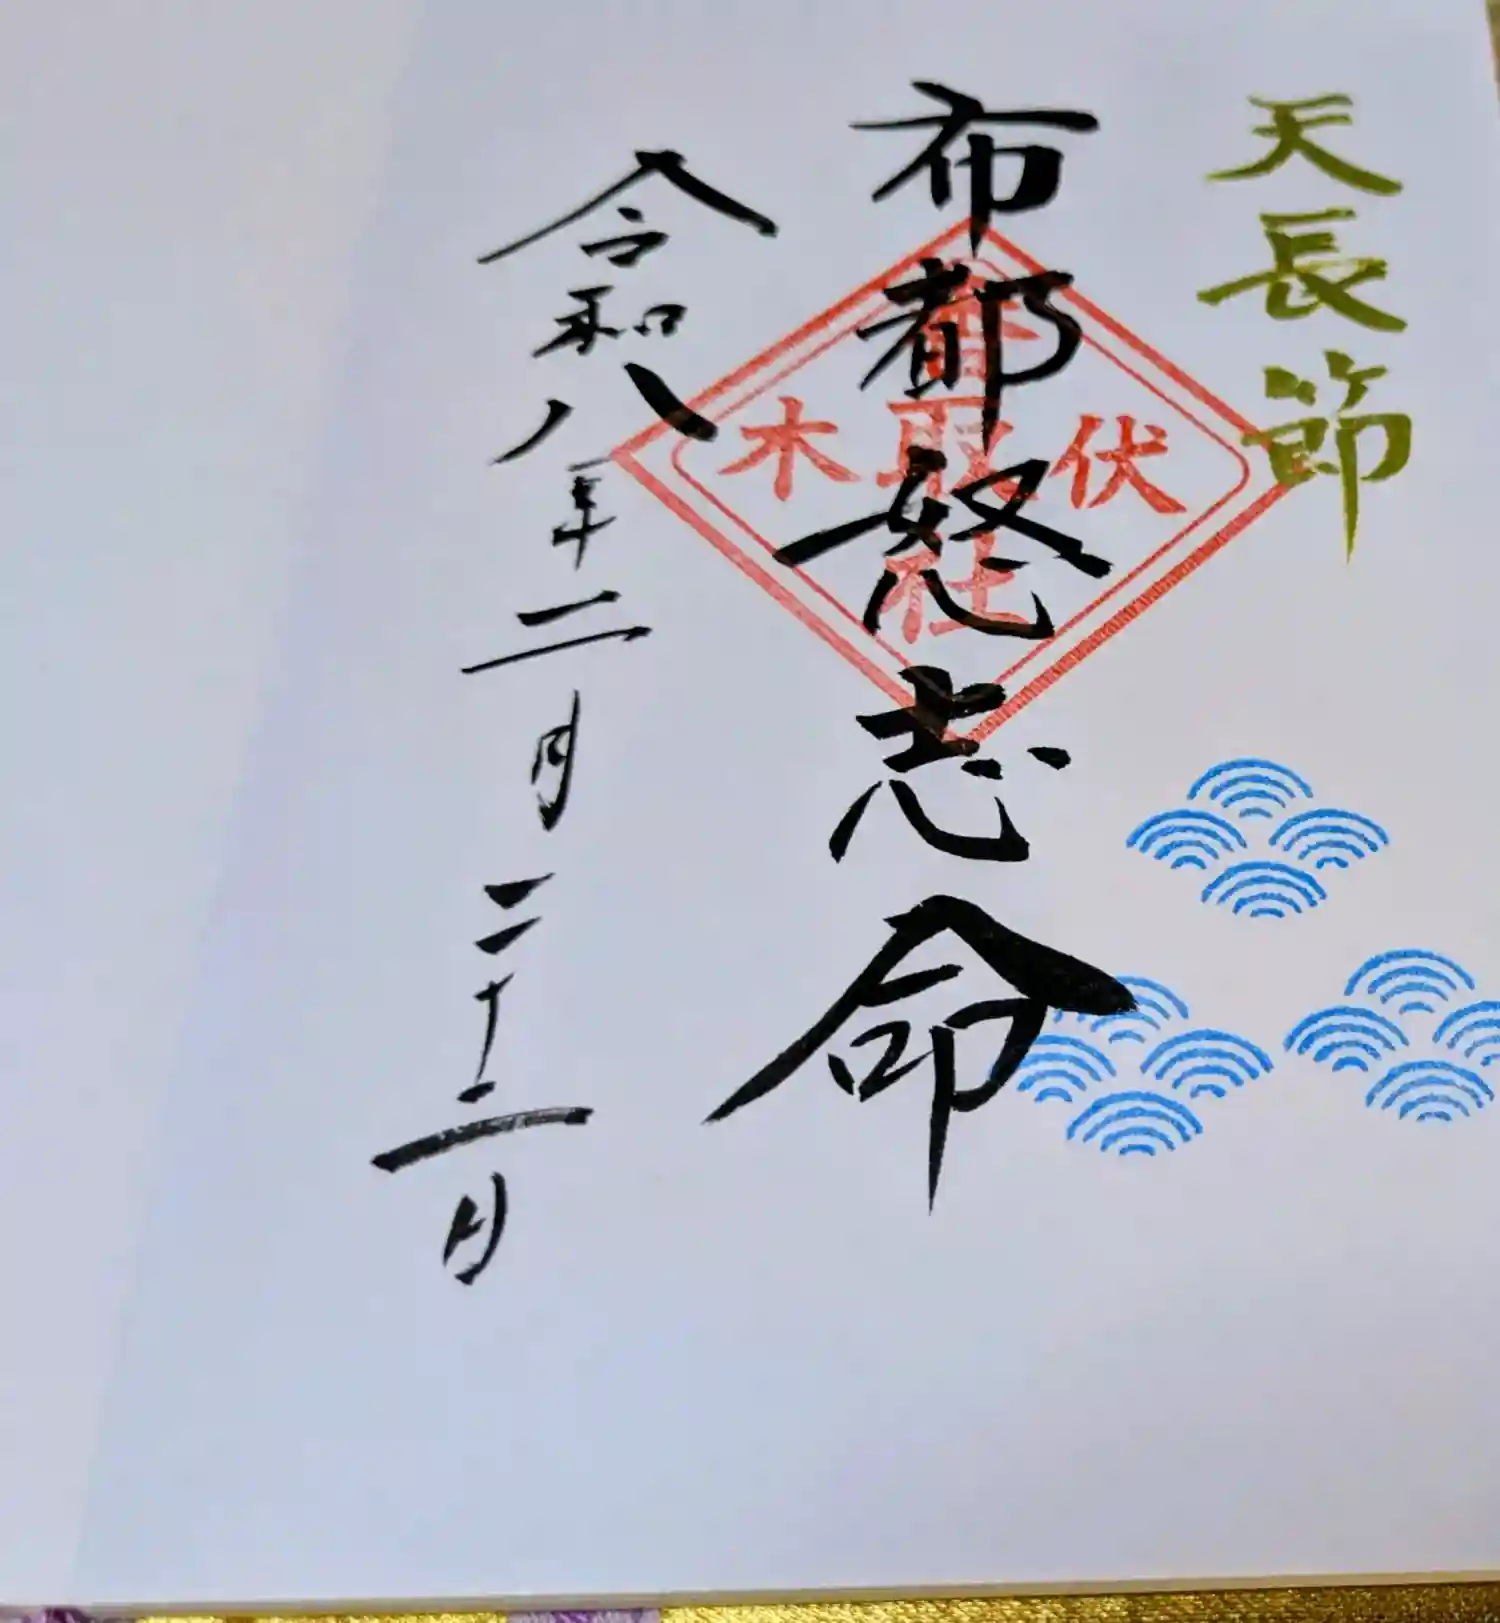 天長節
布都怒志命
伏木
香取社
令和八年二月二十二日